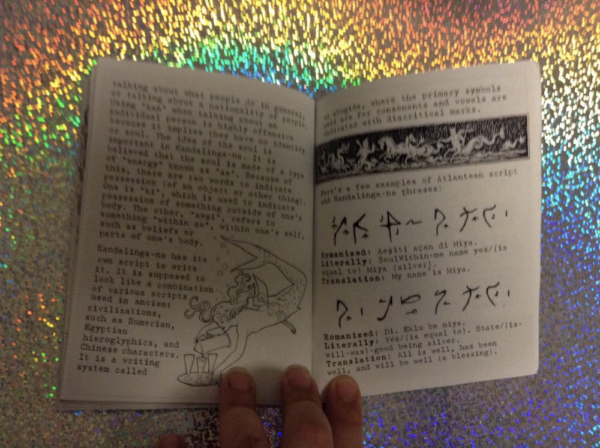 talking about what people do in general,
or talking about a nationality of people.
Using "hai" when talking about an
individual person is highly offensive
because it implies they have no identity
or soul. The idea of the soul is
important in Kandalinga-ma. It is
believed that the soul is made of a type
of energy known as "as". Because of
this, there are two words to indicate
possession (of an object or other thing).
One is "ti", which is used to indicate
possession of something outside of one's
body. The other, "aeşi", refers to
something "within me", within one's self,
such as beliefs or
parts of one's body.
Kandalinga-ma has its
own script to write
it. It is supposed to
look like a combination
of various scripts
used in ancient
civilizations,
such as Sumerian,
Egyptian
hieroglyphics, and
Chinese characters.
It is a writing
system called
an abugida, where the primary symbols
used are for consonants and vowels are
indicated with diacritical marks.
Here's a few examples of Atlantean script
and Kandalinga-ma phrases:
Romanized: Aeşiti açah di Miya.
Literally: SoulWithin-me name yes/(is
equal to) Miya (silver).
Translation: My name is Miya.
Romanized: Di. Eklu be miya.
Literally: Yes/(is equal to). State/(is-
will-was)-good being silver.
Translation: All is well, has been
well, and will be well (a blessing).